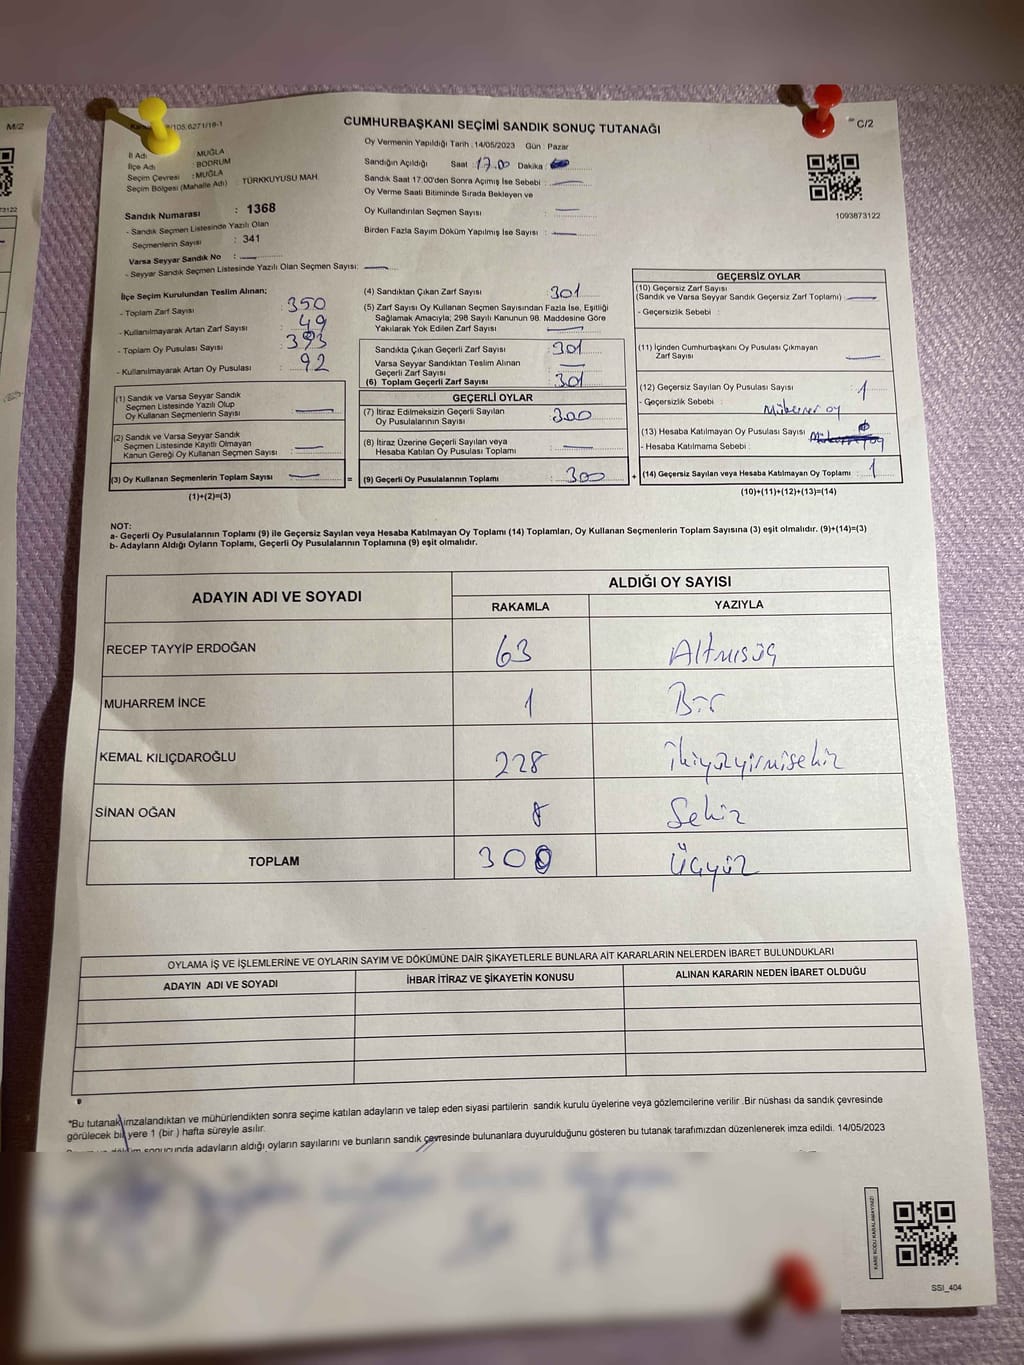 M/2
C/2
CUMHURBAŞKANI SEÇİMİ SANDIK SONUÇ TUTANAĞI
Oy Vermenin Yapıldığı Tarih : 14/05/2023 Gün : Pazar
İl Adı : MUĞLA
İlçe Adı : BODRUM
Seçim Çevresi : MUĞLA
Seçim Bölgesi (Mahalle Adı) : TÜRKKUYUSU MAH.
Sandığın Açıldığı Saat : 17.00 Dakika :
Sandık Saat 17:00'den Sonra Açımış İse Sebebi :
Oy Verme Saati Bitiminde Sırada Bekleyen ve
Oy Kullandırılan Seçmen Sayısı :
Birden Fazla Sayım Döküm Yapılmış İse Sayısı :
1093873122
Sandık Numarası : 1368
- Sandık Seçmen Listesinde Yazılı Olan
Seçmenlerin Sayısı : 341
Varsa Seyyar Sandık No :
- Seyyar Sandık Seçmen Listesinde Yazılı Olan Seçmen Sayısı:
İlçe Seçim Kurulundan Teslim Alınan;
- Toplam Zarf Sayısı : 350
- Kullanılmayarak Artan Zarf Sayısı : 49
- Toplam Oy Pusulası Sayısı : 393
- Kullanılmayarak Artan Oy Pusulası : 92
(1) Sandık ve Varsa Seyyar Sandık
Seçmen Listesinde Yazılı Olup
Oy Kullanan Seçmenlerin Sayısı :
(2) Sandık ve Varsa Seyyar Sandık
Seçmen Listesinde Kayıtlı Olmayan
Kanun Gereği Oy Kullanan Seçmen Sayısı :
(3) Oy Kullanan Seçmenlerin Toplam Sayısı :
(1)+(2)=(3)
(4) Sandıktan Çıkan Zarf Sayısı : 301
(5) Zarf Sayısı Oy Kullanan Seçmen Sayısından Fazla İse, Eşitliği
Sağlamak Amacıyla; 298 Sayılı Kanunun 98. Maddesine Göre
Yakılarak Yok Edilen Zarf Sayısı :
Sandıkta Çıkan Geçerli Zarf Sayısı : 301
Varsa Seyyar Sandıktan Teslim Alınan
Geçerli Zarf Sayısı :
(6) Toplam Geçerli Zarf Sayısı : 301
GEÇERLİ OYLAR
(7) İtiraz Edilmeksizin Geçerli Sayılan
Oy Pusulalarının Sayısı : 300
(8) İtiraz Üzerine Geçerli Sayılan veya
Hesaba Katılan Oy Pusulası Toplamı :
= (9) Geçerli Oy Pusulalarının Toplamı : 300
GEÇERSİZ OYLAR
(10) Geçersiz Zarf Sayısı
(Sandık ve Varsa Seyyar Sandık Geçersiz Zarf Toplamı) :
- Geçersizlik Sebebi :
(11) İçinden Cumhurbaşkanı Oy Pusulası Çıkmayan
Zarf Sayısı :
(12) Geçersiz Sayılan Oy Pusulası Sayısı : 1
- Geçersizlik Sebebi :
(13) Hesaba Katılmayan Oy Pusulası Sayısı :
- Hesaba Katılmama Sebebi :
+ (14) Geçersiz Sayılan veya Hesaba Katılmayan Oy Toplamı : 1
(10)+(11)+(12)+(13)=(14)
NOT:
a- Geçerli Oy Pusulalarının Toplamı (9) ile Geçersiz Sayılan veya Hesaba Katılmayan Oy Toplamı (14) Toplamları, Oy Kullanan Seçmenlerin Toplam Sayısına (3) eşit olmalıdır. (9)+(14)=(3)
b- Adayların Aldığı Oyların Toplamı, Geçerli Oy Pusulalarının Toplamına (9) eşit olmalıdır.
ADAYIN ADI VE SOYADI
ALDIĞI OY SAYISI
RAKAMLA YAZIYLA
RECEP TAYYİP ERDOĞAN 63 Altmışüç
MUHARREM İNCE 1 Bir
KEMAL KILIÇDAROĞLU 228 İkiyüzyirmisekiz
SİNAN OĞAN 8 Sekiz
TOPLAM 300 Üçyüz
OYLAMA İŞ VE İŞLEMLERİNE VE OYLARIN SAYIM VE DÖKÜMÜNE DAİR ŞİKAYETLERLE BUNLARA AİT KARARLARIN NELERDEN İBARET BULUNDUKLARI
ADAYIN ADI VE SOYADI İHBAR İTİRAZ VE ŞİKAYETİN KONUSU ALINAN KARARIN NEDEN İBARET OLDUĞU
*Bu tutanak imzalandıktan ve mühürlendikten sonra seçime katılan adayların ve talep eden siyasi partilerin sandık kurulu üyelerine veya gözlemcilerine verilir .Bir nüshası da sandık çevresinde
görülecek bir yere 1 (bir ) hafta süreyle asılır.
sonucunda adayların aldığı oyların sayılarını ve bunların sandık çevresinde bulunanlara duyurulduğunu gösteren bu tutanak tarafımızdan düzenlenerek imza edildi. 14/05/2023
KARE KODU KARALAMAYINIZ!
SSI_404